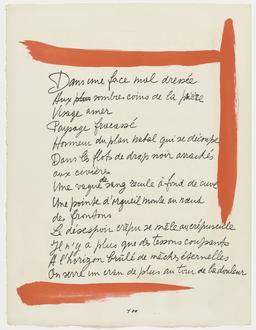 Dans une face mal dressée
Aux plus sombres coins de la pièce
Visage amer
Paysage fracassé
Honneur du plan natal qui se découpe
Dans les flots de drap noir arrachés
aux civières
Une vague de sang recule à fond de cuve
Une pointe d'orgueil monte au nœud
des frontons
Le désespoir crépu se mêle au crépuscule
Il n'y a plus que des tessons coupants
À l'horizon brûlé de mèches éternelles
On serre un cran de plus autour de la douleur